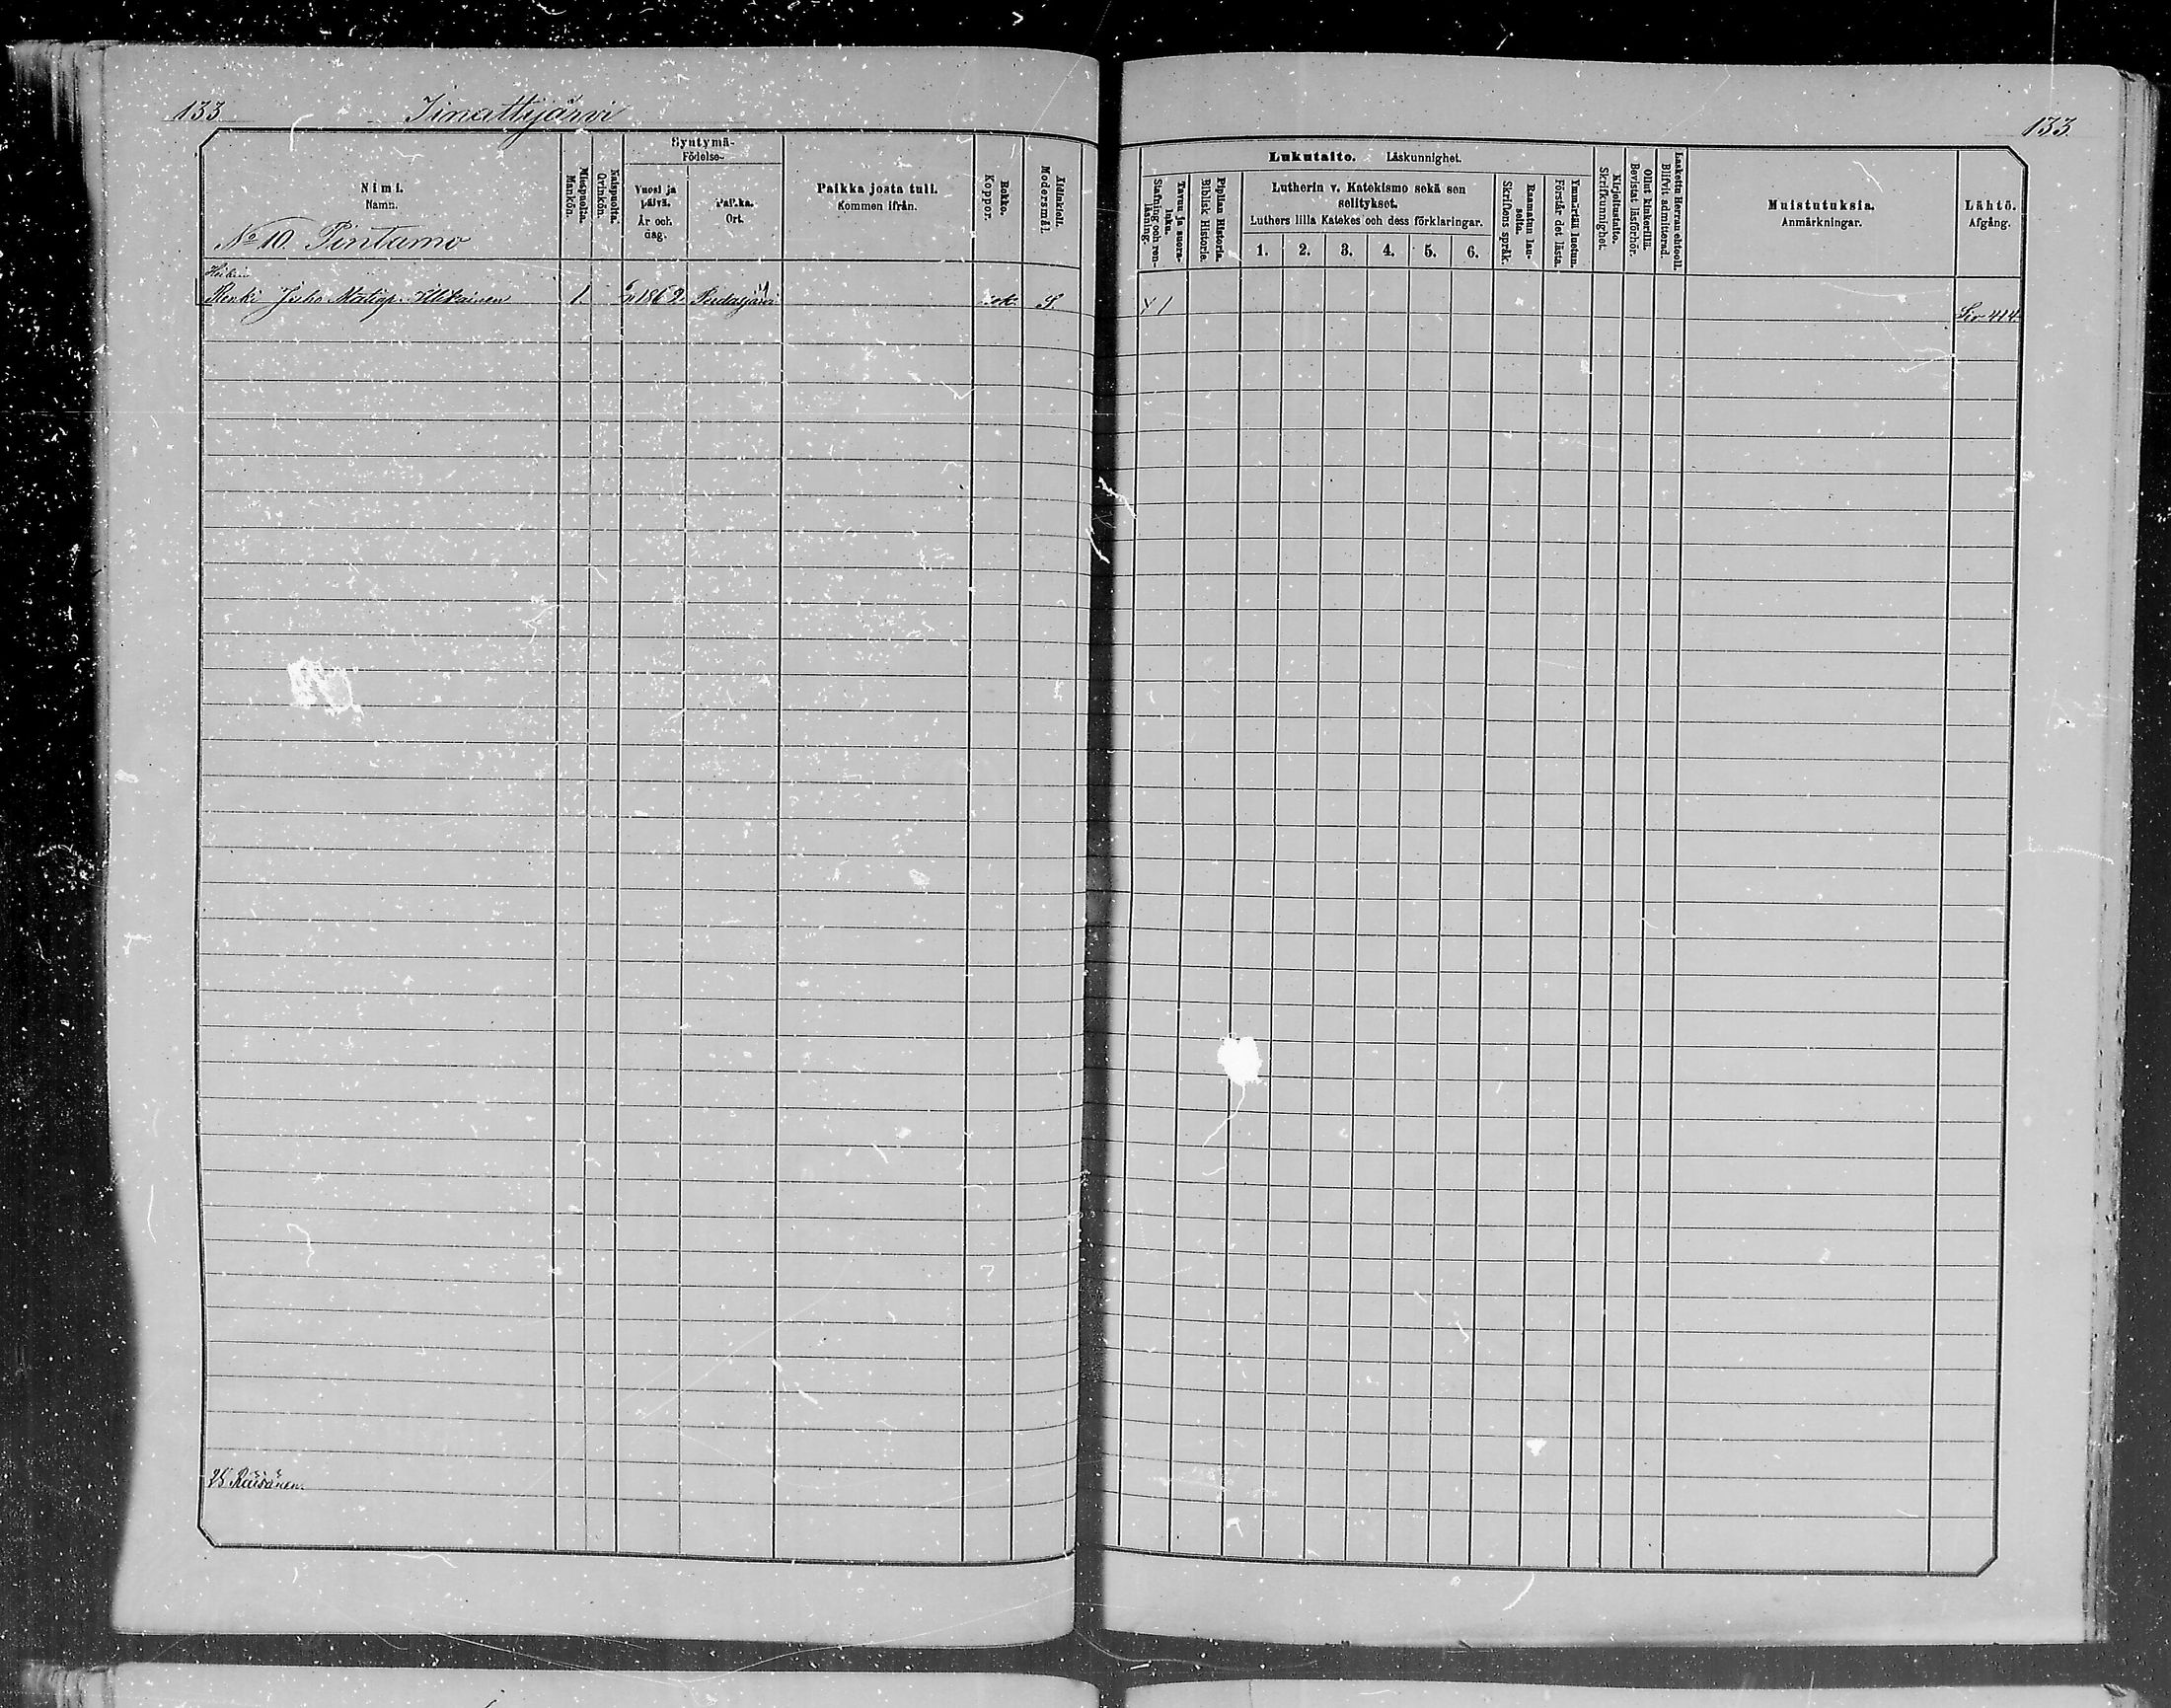 133. Iinattijärvi 133.
Syntymä-
Födelse-
Nimi.
Namn.
Miespuolia.
Mankön.
Naispuolia.
Qvinkön.
Vuosi ja päivä.
År och dag.
Paikka.
Ort.
Paikka josta tuli.
Kommen ifrån.
Rokko.
Koppor.
Äidinkieli.
Modersmål.
Lukutaito. Läskunnighet.
Tavuu ja suora-luku.
Stafning och ren-läsning.
Piplian Historia.
Biblisk Historie.
Lutherin v. Katekismo sekä sen
selitykset.
Luthers lilla Katekes och dess förklaringar.
1. 2. 3. 4. 5. 6.
Raamatun lau-seita.
Skriftens språk.
Ymmärtää luetun.
Förstår det lästa.
Kirjoitustaito.
Skrifkunnighet.
Ollut kinkerillä.
Bevistat läsförhör.
Laskettu Herran ehtooll.
Blifvit admitterad.
Muistutuksia.
Anmärkningar.
Lähtö.
Afgång.
No 10. Pintamo
Renki Juho Matinp. 1 1862 Pudasjärvi rok. S.
Sir. 414
Räisänen.